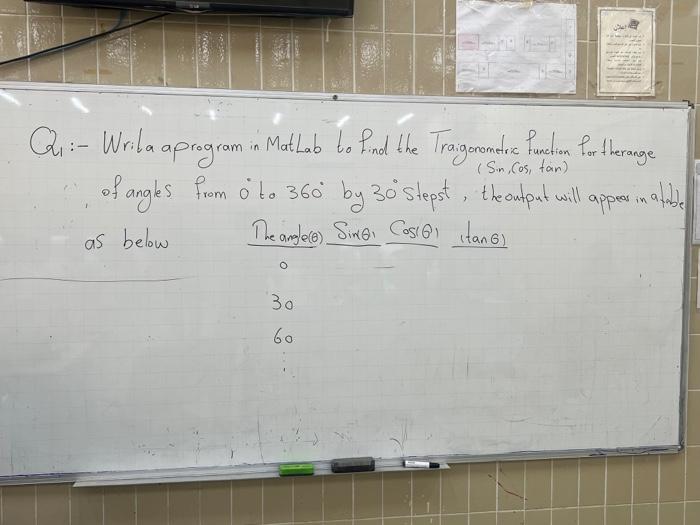 Q1:- Writa a program in MatLab to find the Traigonometric function for the range
(Sin, Cos, tan)
of angles from 0° to 360° by 30° Stepst, the output will appear in a table
as below The angle(θ) Sin(θ) Cos(θ) (tan θ)
0
30
60